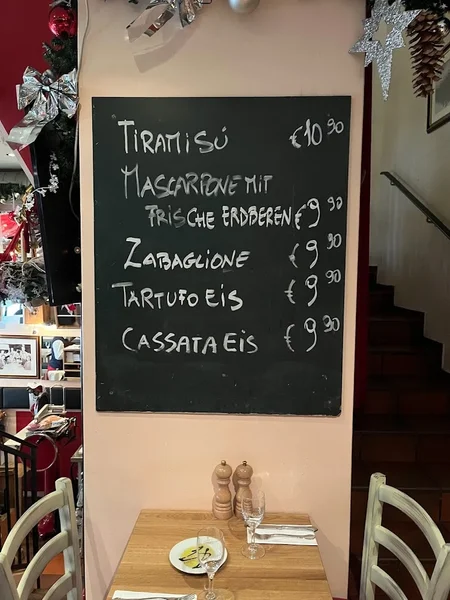 TIRAMISÚ €10 90
MASCARPONE MIT
FRISCHE ERDBEREN €9 90
ZABAGLIONE €9 90
TARTUFO EIS €9 90
CASSATA EIS €9 90